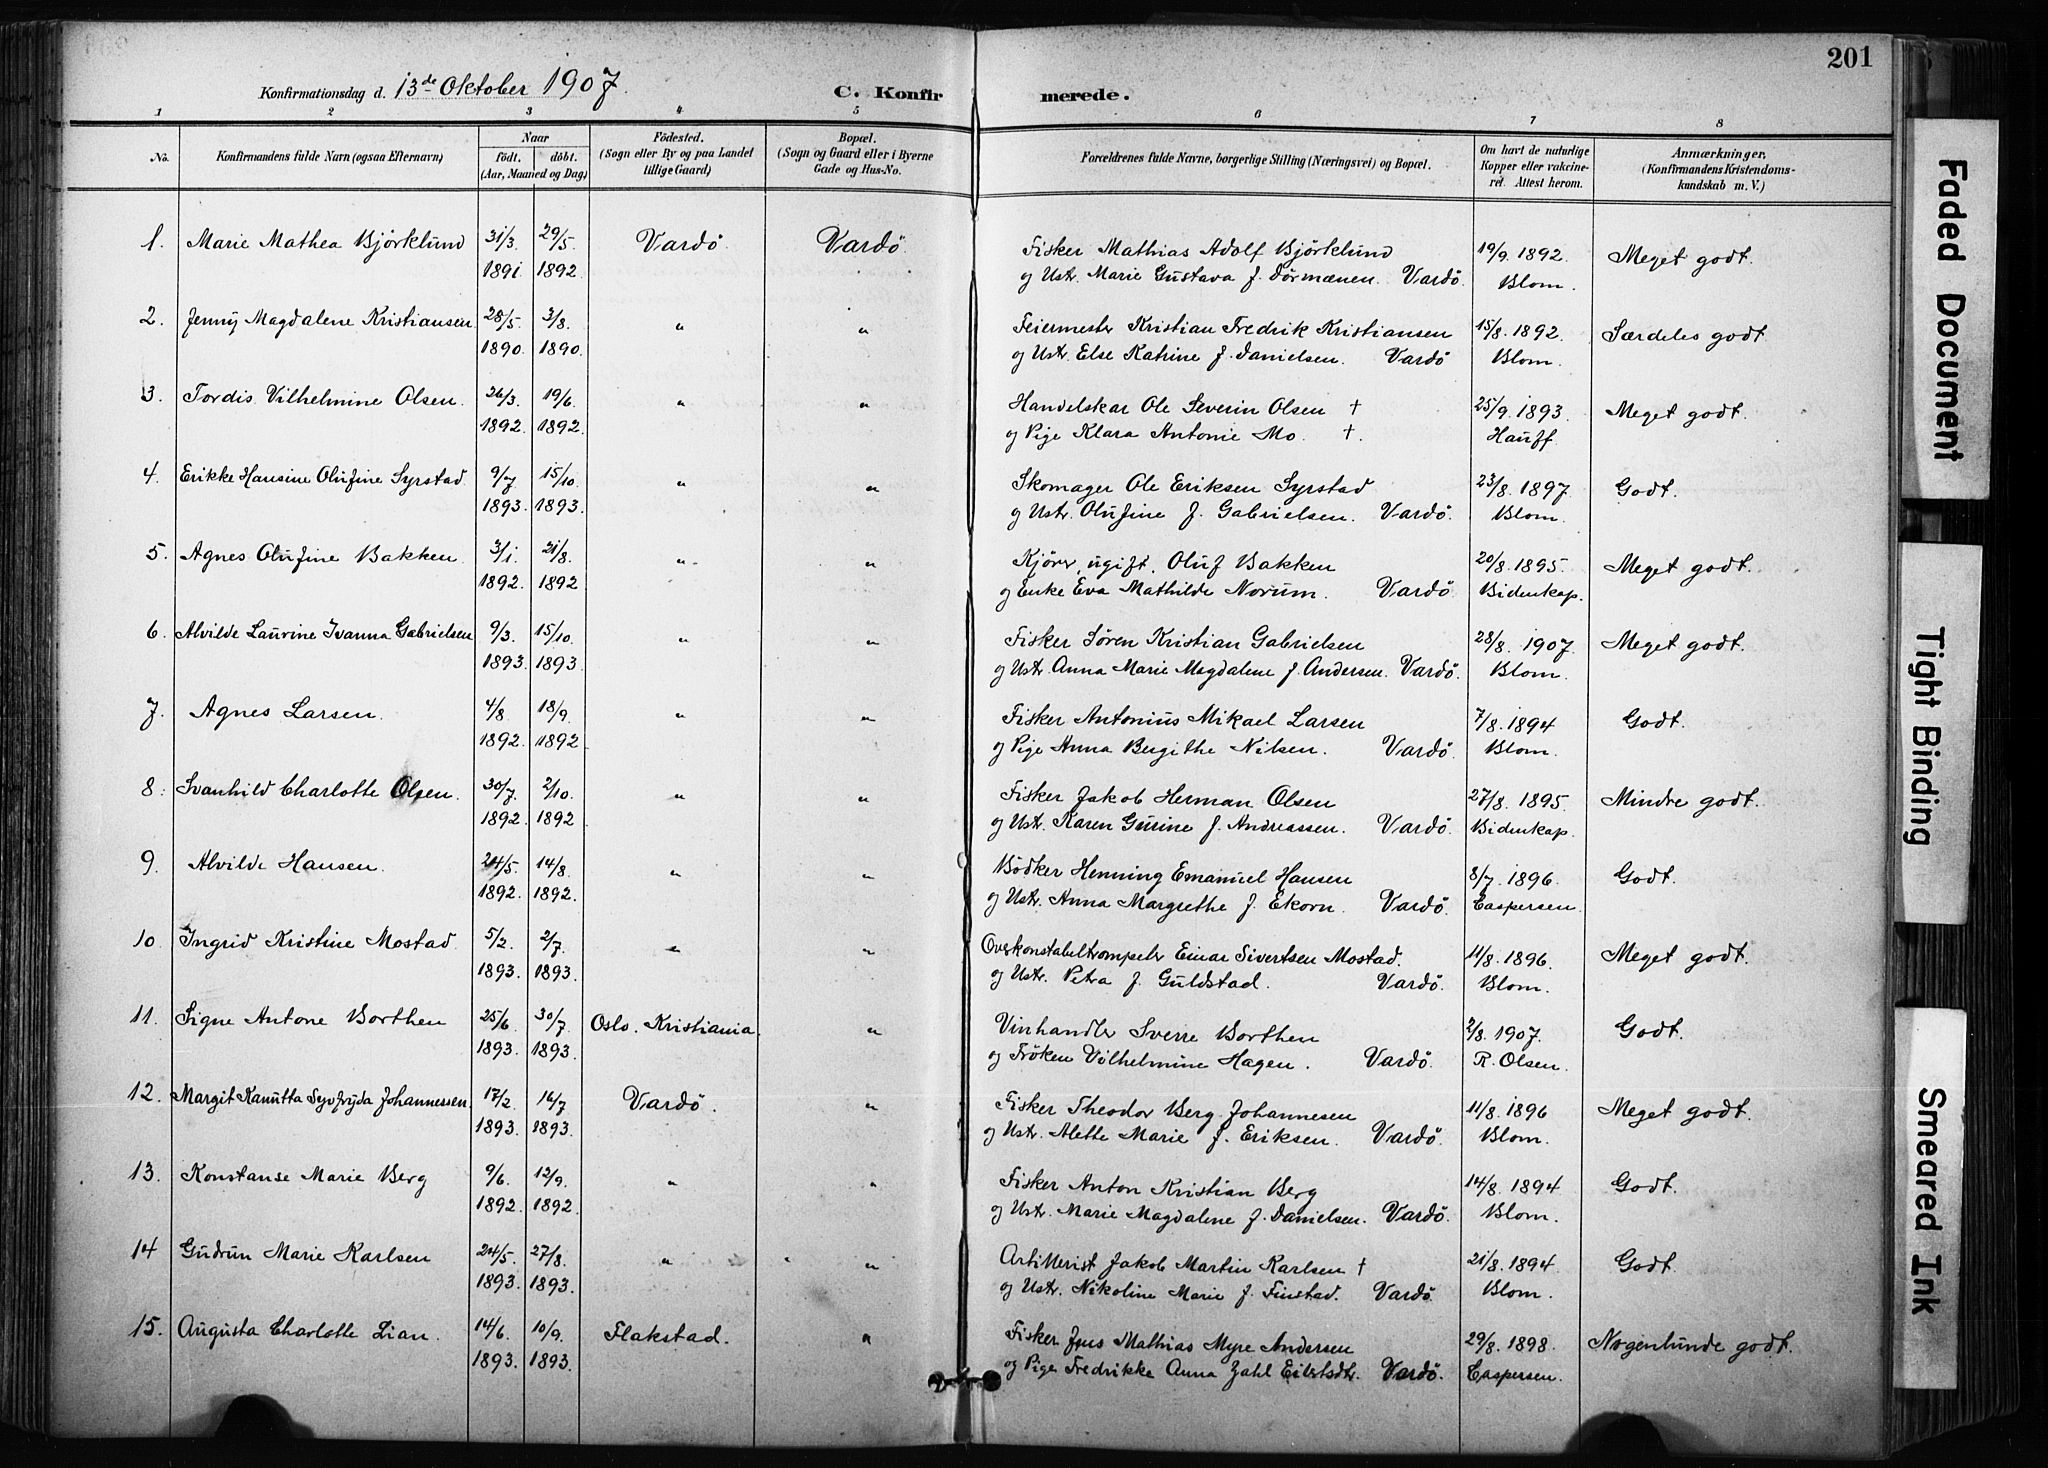 201
Konfirmationsdag d. 13de Oktober 1907.
C. Konfirmerede.
1 2 3 4 5 6 7 8
No.
Konfirmandens fulde Navn (ogsaa Efternavn)
Naar
født. døbt.
(Aar, Maaned og Dag)
Fødested.
(Sogn eller By og paa Landet
tillige Gaard)
Bopæl.
(Sogn og Gaard eller i Byerne
Gade og Hus-No.
Forældrenes fulde Navne, borgerlige Stilling (Næringsvei) og Bopæl.
Om havt de naturlige
Kopper eller vakcine-
ret. Attest herom.
Anmærkninger.
(Konfirmandens Kristendoms-
kundskab m. V.)
1. Marie Mathea Bjørklund 31/3. 29/5. Vardö. Vardö. Fisker Mathias Adolf Björklund 19/9. 1892. Meget godt.
1891 1892. og Ustr. Marie Gustava f. Törmænen. Vardö. Blom.
2. Jenny Magdalene Kristiansen 28/5. 3/8. " " Feiermester Kristian Fredrik Kristiansen 15/8. 1892. Særdeles godt
1890. 1890. og Ustr. Else Katrine f. Danielsen. Vardö Blom.
3. Tordis Vilhelmine Olsen. 26/3. 19/6. " " Handelskar Ole Severin Olsen † 25/9. 1893. Meget godt.
1892. 1892. og Pige Klara Antonie Mo. †. Hauff.
4. Erikke Hansine Olufine Syrstad 9/7 15/10. " " Skomager Ole Eriksen Syrstad 23/8. 1897. Godt.
1893. 1893. og Ustr. Olufine f. Gabrielsen. Vardö. Blom.
5. Agnes Olufine Bakken. 3/1. 21/8. " " Kjörer, ugift, Oluf Bakken 20/8. 1895. Meget godt.
1892. 1892 og Enke Eva Mathilde Norum. Vardö. Bidenkap.
6. Alvilde Laurine Ivanna Gabrielsen 9/3. 15/10. " " Fisker Sören Kristian Gabrielsen 28/8. 1907. Meget godt.
1893. 1893. og Ustr. Anna Marie Magdalene f. Andersen. Vardö. Blom.
7. Agnes Larsen. 4/8 18/9. " " Fisker Antonius Mikael Larsen 7/8. 1894 Godt.
1892. 1892. og Pige Anna Bergithe Nilsen. Vardö Blom.
8. Svanhild Charlotte Olsen. 30/7. 2/10. " " Fisker Jakob Herman Olsen 27/8. 1895. Mindre godt.
1892. 1892 og Ustr. Karen Gurine f. Andreassen. Vardö. Bidenkap.
9. Alvilde Hansen. 24/5. 14/8. " " Bödker Henning Emanuel Hansen 8/7. 1896. Godt.
1892. 1892. og Ustr. Anna Margrethe f. Ekorn. Vardö. Caspersen.
10. Ingrid Kristine Mostad. 5/2. 2/7. " " Overkonstabeltrompeter Einar Sivertsen Mostad. 11/8. 1896. Meget godt.
1893. 1893. og Ustr. Petra f. Guldstad. Vardö. Blom.
11. Signe Antone Borthen 25/6. 30/7. Oslo. Kristiania. " Vinhandler Sverre Borthen 2/8. 1907. Godt.
1893. 1893. og Fröken Vilhelmine Hagen. Vardö. R. Olsen.
12. Margit Kanutta Johannessen 17/2. 16/7 Vardö. " Fisker Theodor Berg Johannesen 11/8. 1896 Meget godt.
1893. 1893. og Ustr. Alette Marie f. Eriksen. Vardö. Blom.
13. Konstanse Marie Berg 9/6. 12/9. " " Fisker Anton Kristian Berg 14/8. 1894 Godt.
1892. 1892. og Ustr. Marie Magdalene f. Danielsen. Vardö. Blom.
14 Gudrun Marie Karlsen 24/5. 27/8. " " Artillerist Jakob Martin Karlsen † 21/8. 1894. Godt.
1893. 1893. og Ustr. Nikoline Marie f. Finstad. Vardö. Blom.
15. Augusta Charlotte Lian. 14/6. 10/9. Flakstad. " Fisker Jens Mathias Myre Andersen 29/8. 1898. Nogenlunde godt.
1893. 1893. og Pige Fredrikke Anna Zahl Eilertsdtr. Vardö. Caspersen.
Faded Document
Tight Binding
Smeared Ink